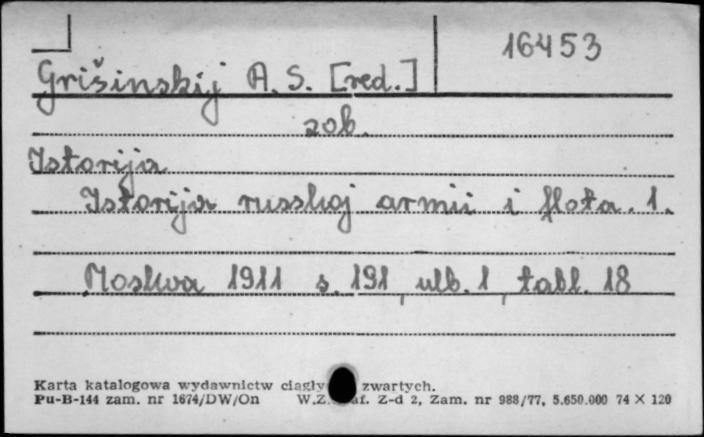 16453
Grišinskij A. S. [red.]
zob.
Istorija
Istorija russkoj armii i flota. 1.
Moskva 1911 s. 191, ulb. 1, tabl. 18
Karta katalogowa wydawnictw ciągły zwartych.
Pu-B-144 zam. nr 1674/DW/On W.Z. af. Z-d 2, Zam. nr 988/77, 5.650.000 74 X 120